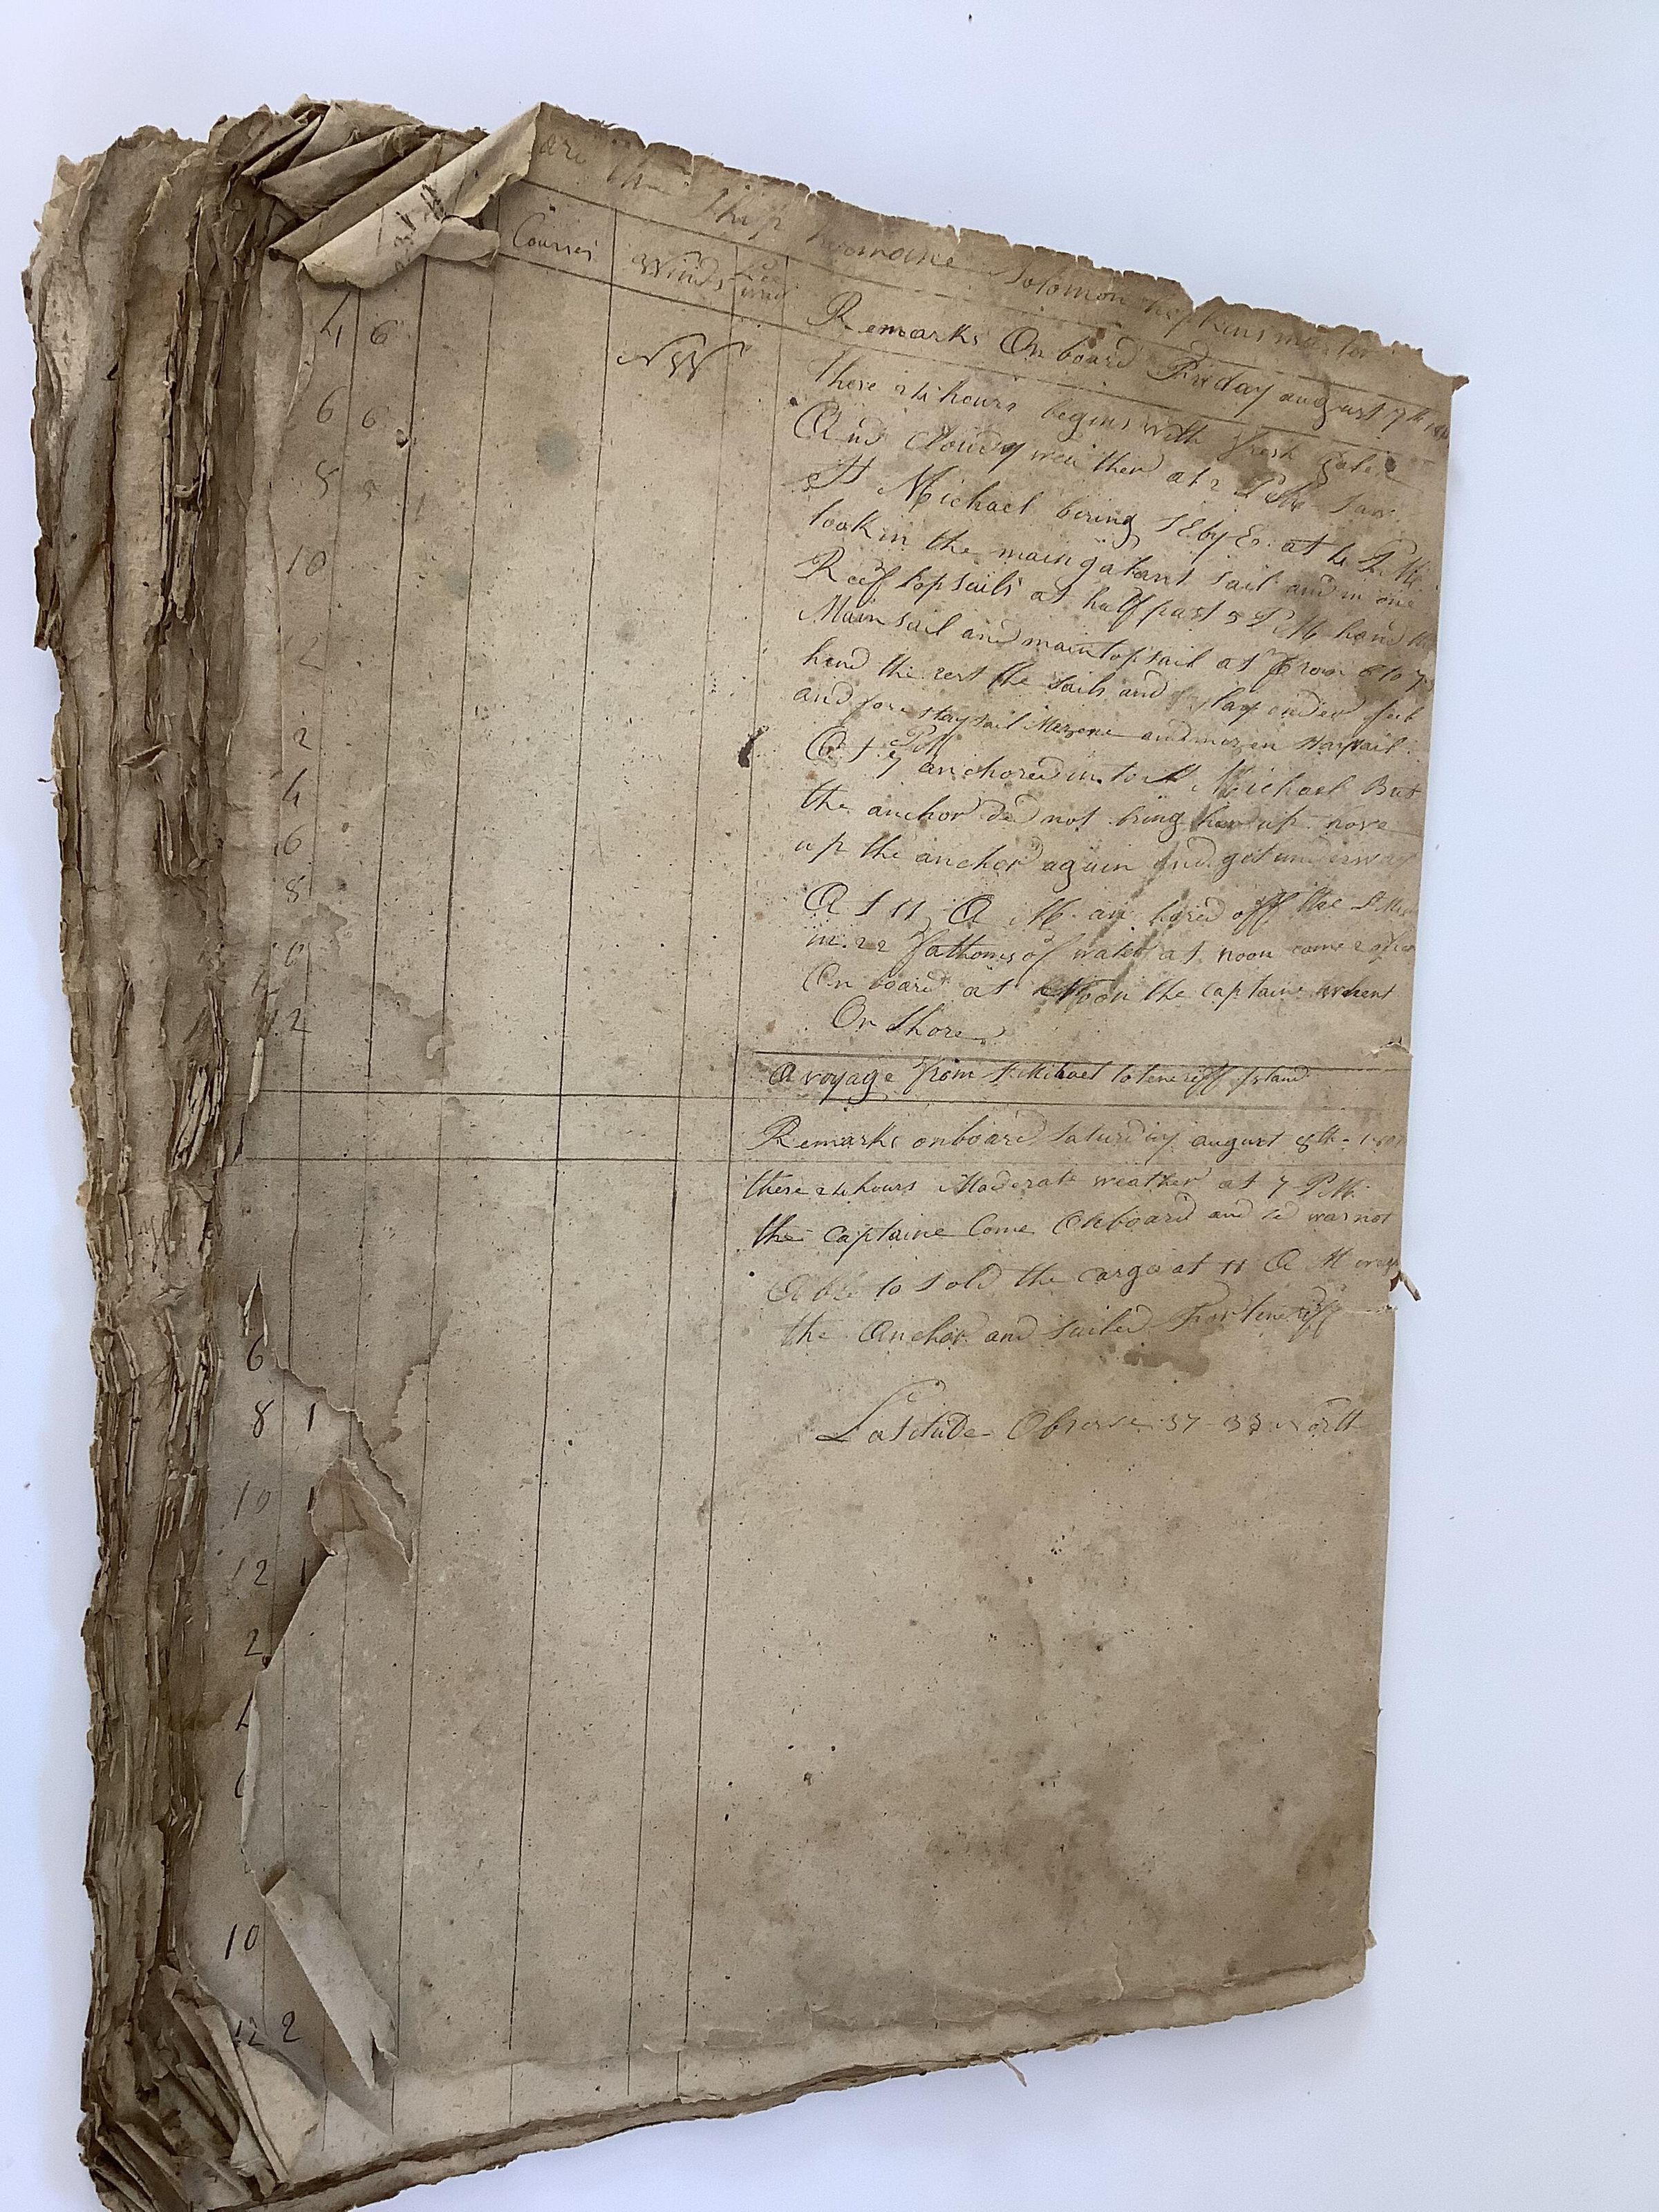 ship Solomon hopkins master
Courses Winds Lee way
Remarks On board Friday august 7th
4 6 NW
these 24 hours begins with fresh Gales
6 6
And Cloudy weather at 2 P M Saw
St Michael bering SEbyE at 4 P M
8 5
took in the main galant sail and in one
10
Reef topsails at half past 5 P M hand
Main sail and maintopsail at from 6 to 7
12
hand the rest the sails and lay under
and fore staysail Mezene and mezen staysail
2
At 7 PM anchored in to St Michael But
4
the anchor ded not bring her up hove
6
up the anchor again and got underway
8
At 11 A M anchored off the St
10
in 22 fathoms of water at noon come
On board at Noon the captaine whent
12
On Shore
A voyage from St Michael to teneriff Island
Remarks onboard Saturday august 8th
these 24 hours Moderate weather at 7 P M
the captaine Come Onboard and was not
Able to sold the cargo at 11 A M
the Anchor and sailed For teneriff
6
8 1
Latitude Observe 37-33 North
10 1
12 1
2
4
6
10
12 2